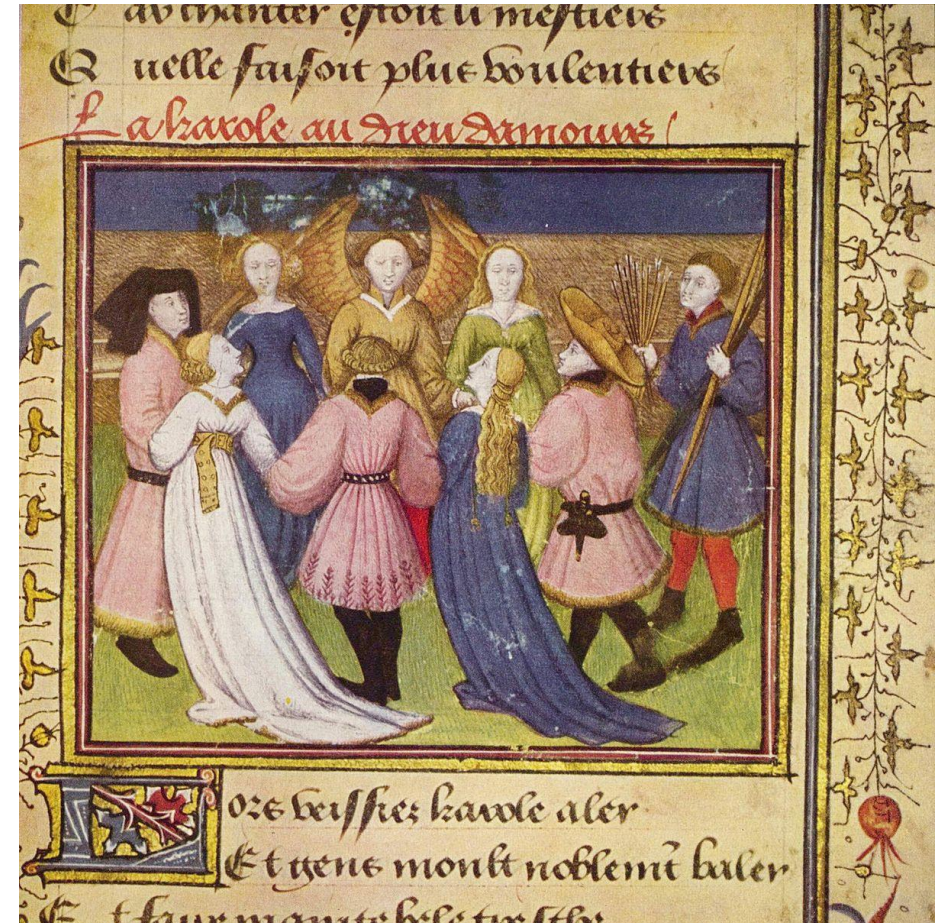 C au chanter estoit li mestiers
Q uelle faisoit plus voulentiers
La karole au dieu damours
Lors veissiez karole aler
Et gens moult noblemt̄ baler
E t faire mainte bele tresche